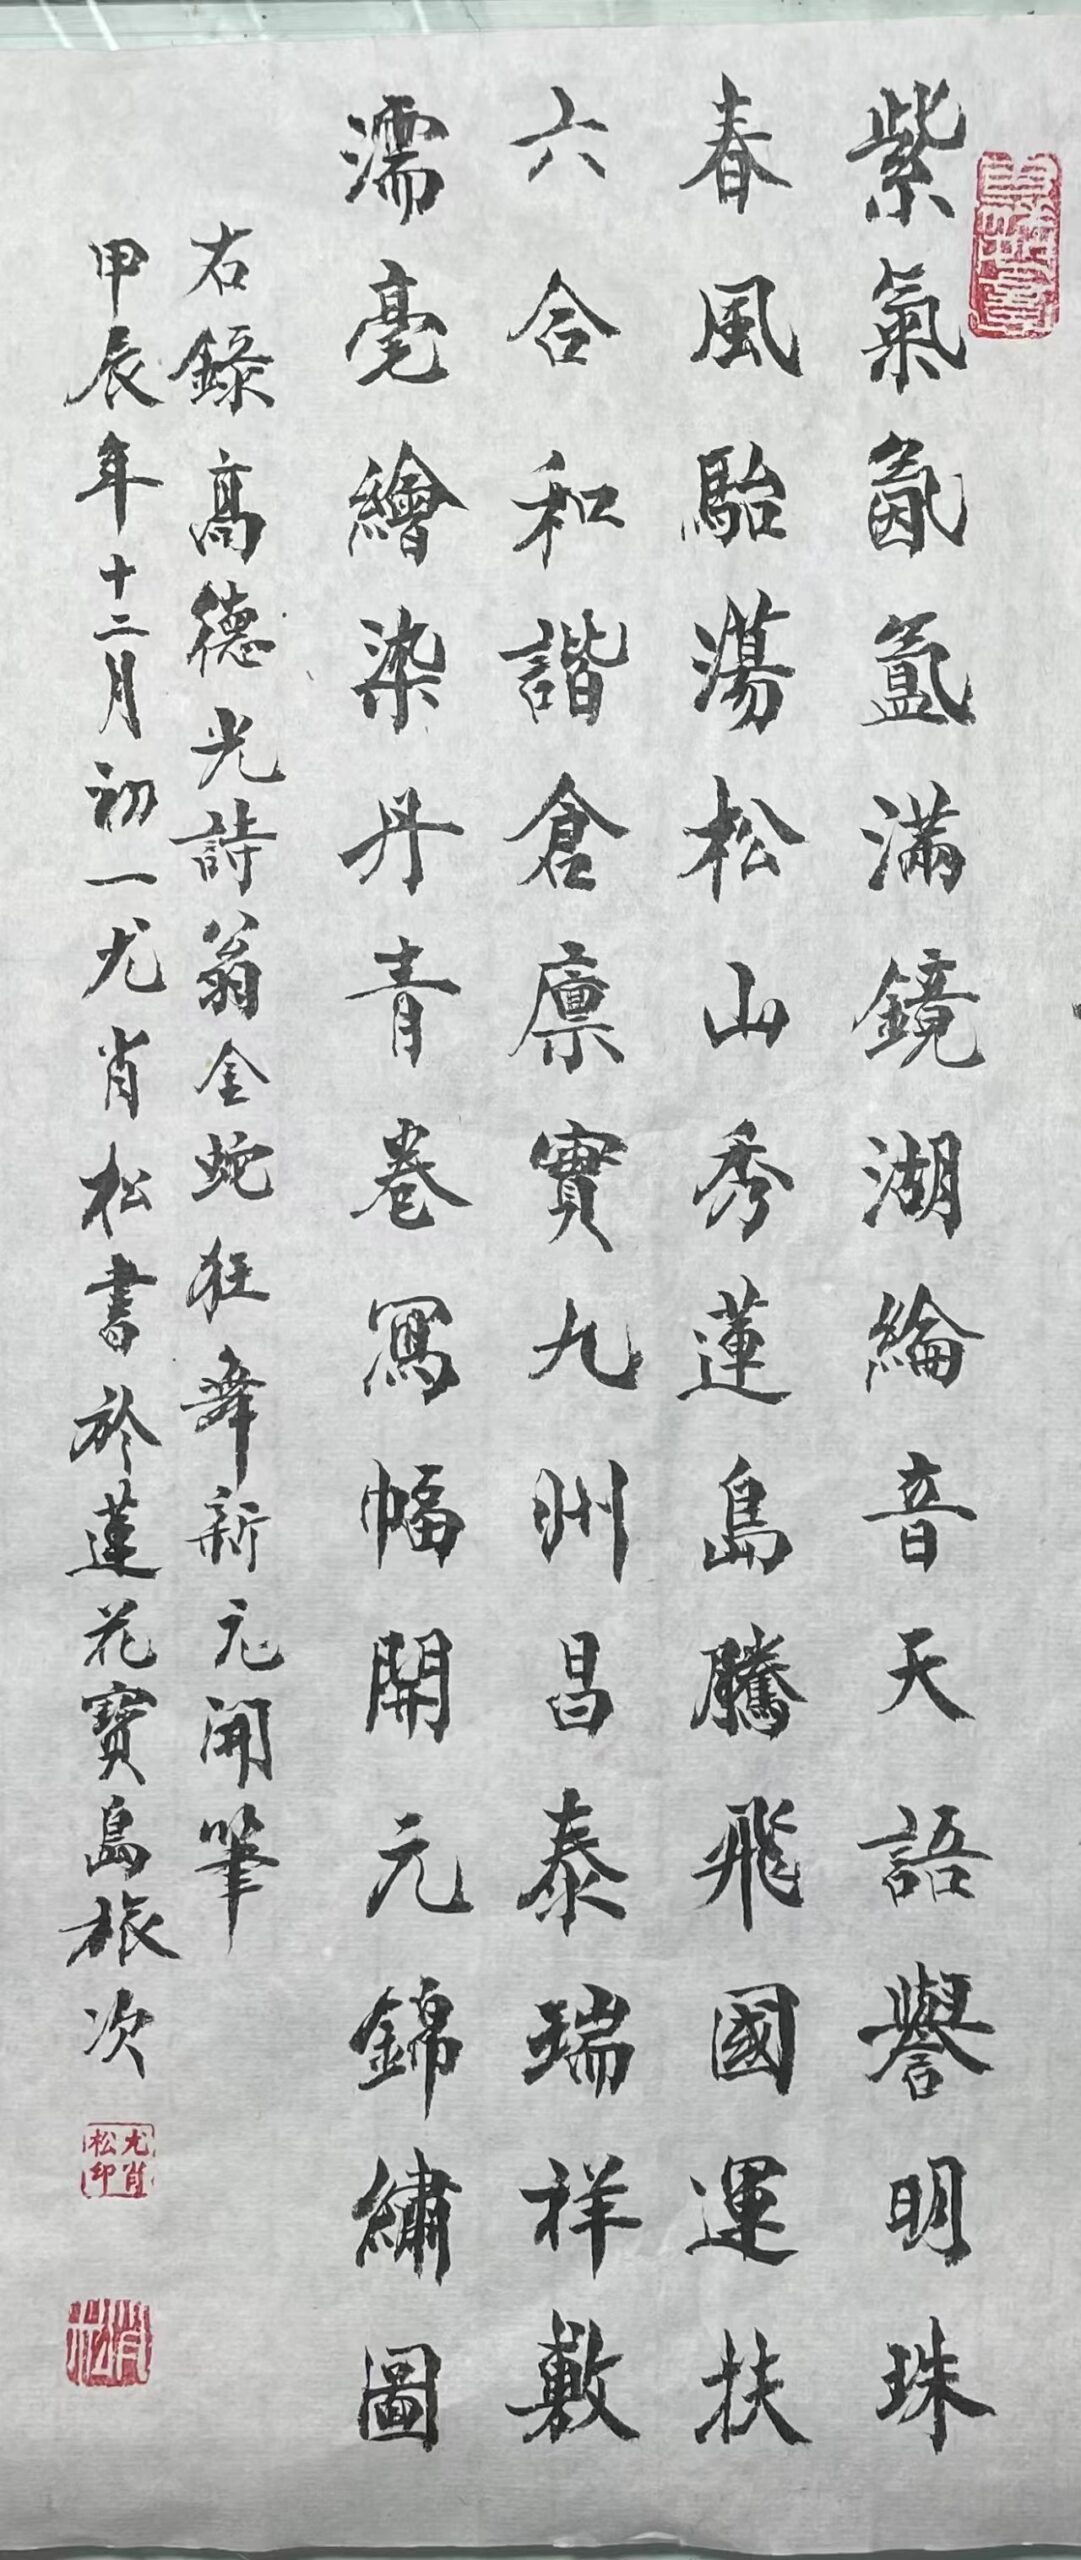 紫氣氤氳滿鏡湖綸音天語譽明珠
春風駘蕩松山秀蓮島騰飛國運扶
六合和諧倉廪實九州昌泰瑞祥敷
濡毫繪染丹青卷寫幅開元錦繡圖
右錄高德光詩翁金蛇狂舞新元開筆
甲辰年十二月初一尤肖松書於蓮花寶島旅次
尤肖松印
肖松